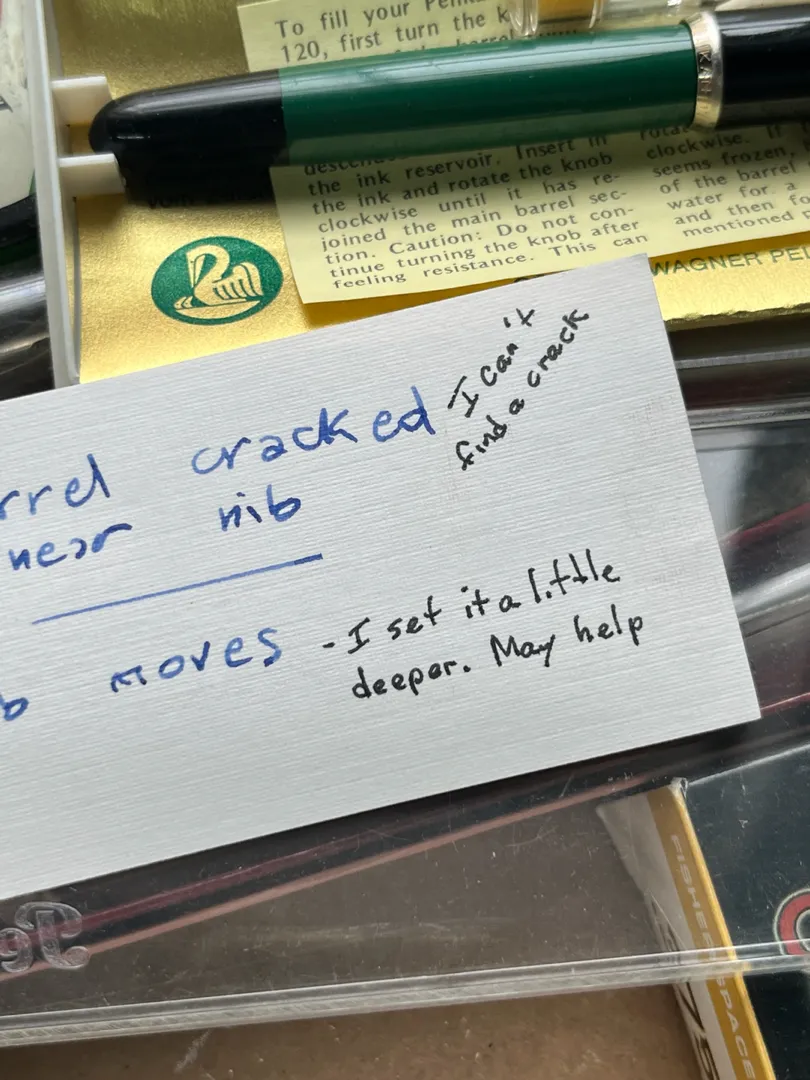 To fill your
120, first turn the
the ink reservoir. Insert in
the ink and rotate the knob
clockwise until it has re-
joined the main barrel sec-
tion. Caution: Do not con-
tinue turning the knob after
feeling resistance. This can
clockwise. If
seems frozen,
of the barrel
water for a
and then
mentioned
WAGNER
cracked
I can't
find a crack
near nib
moves
- I set it a little
deeper. May help
FISHER SPACE